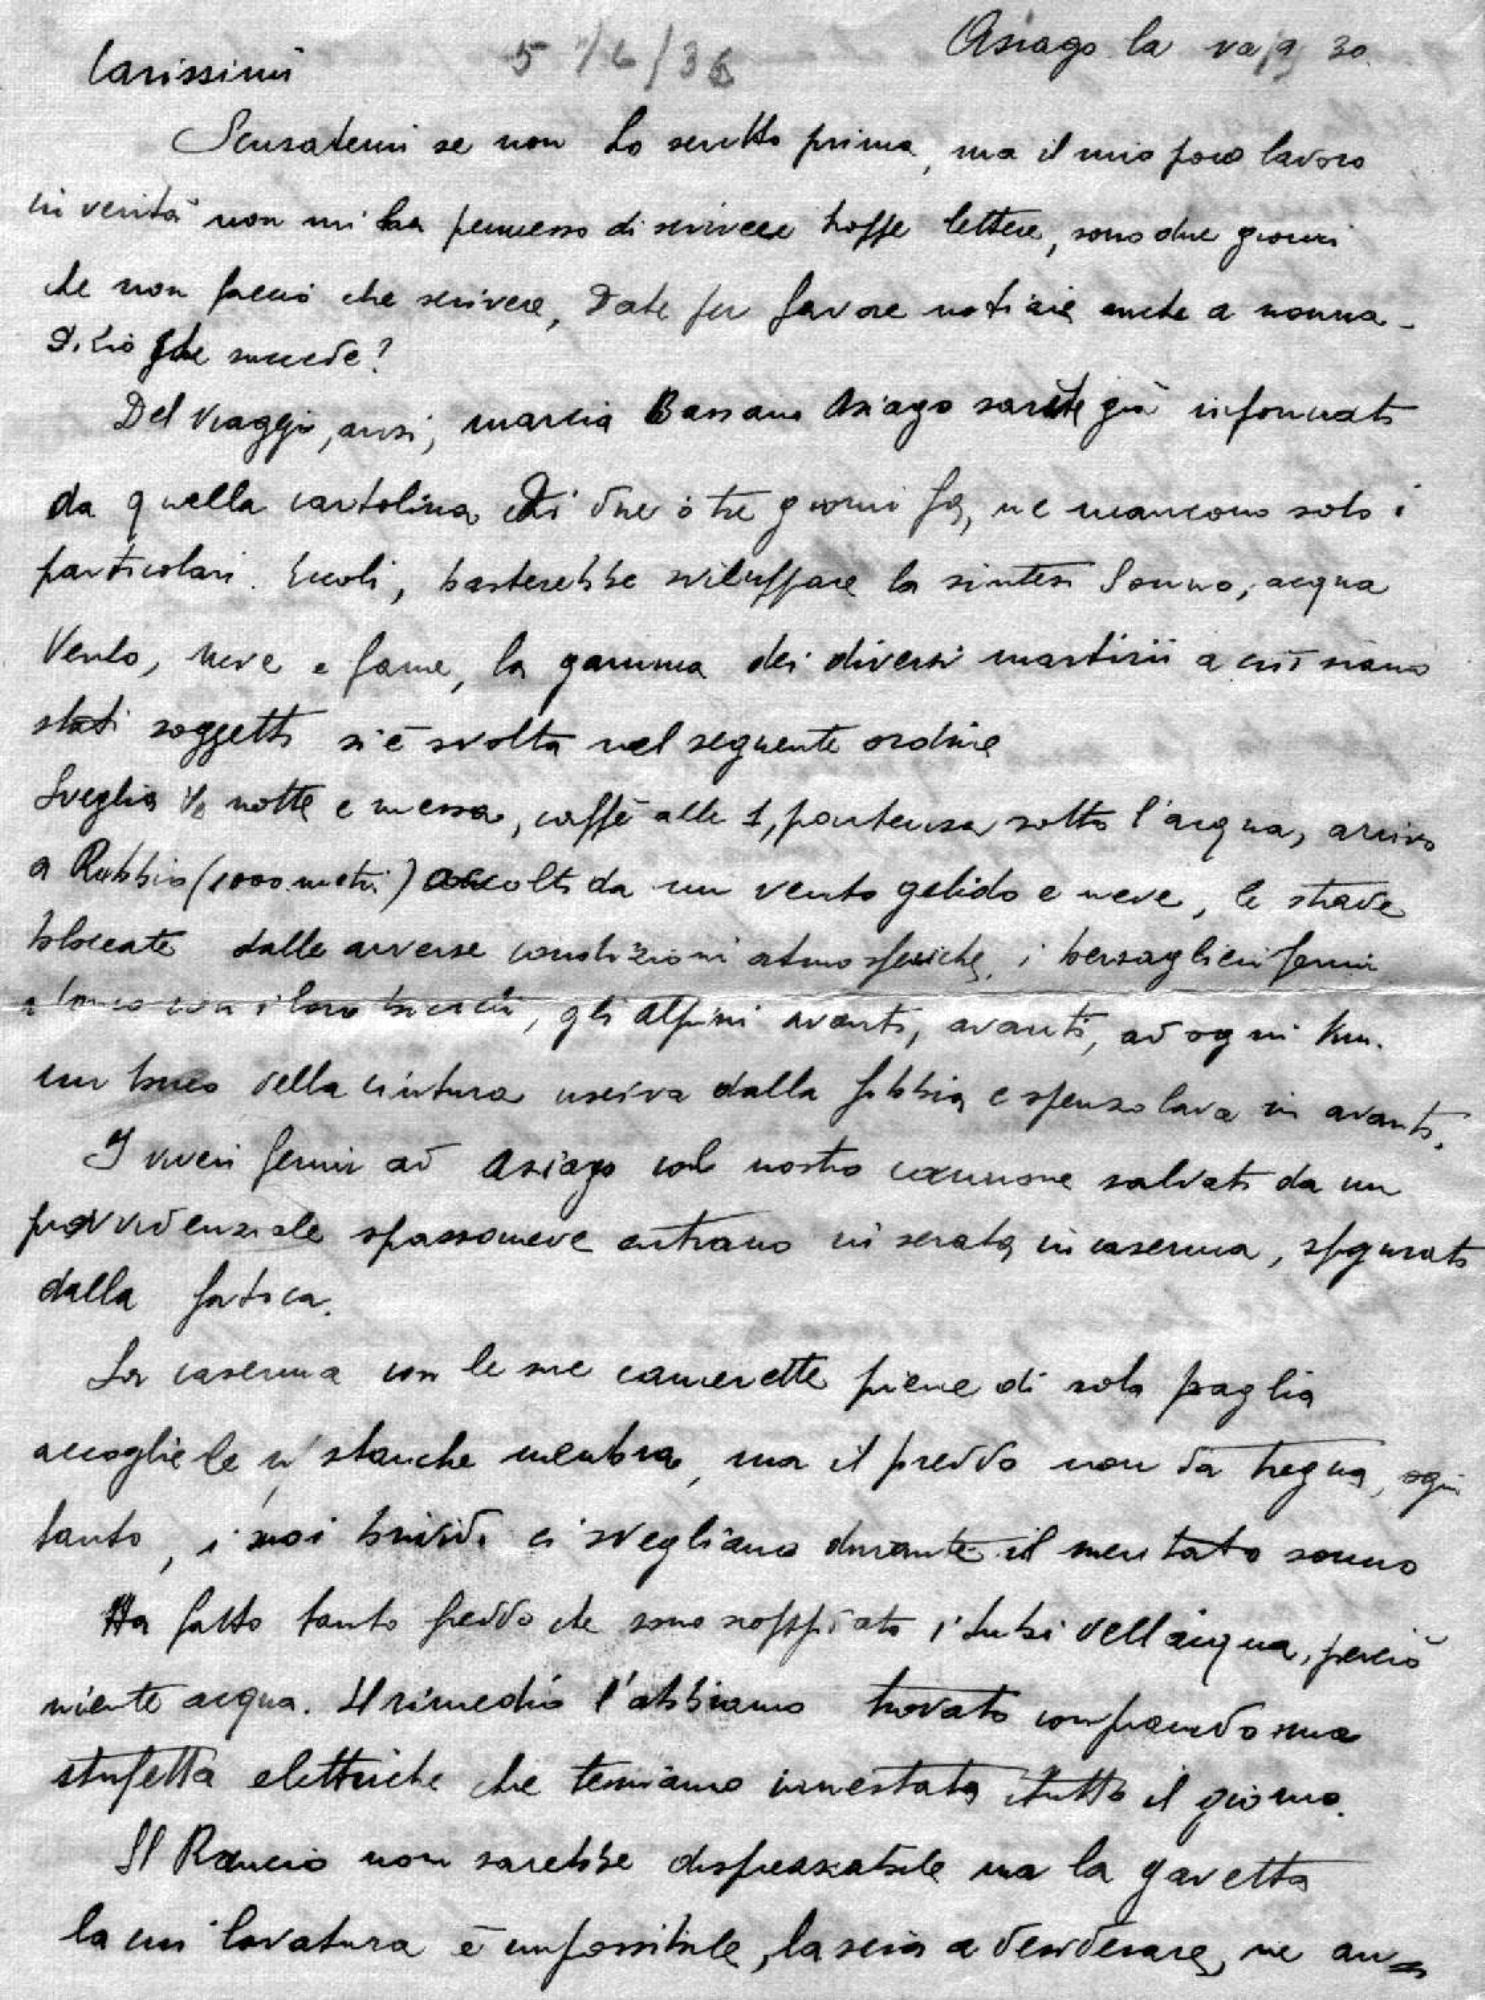 Asiago la
5 /6/36
Carissimi
Scusatemi se non ho scritto prima, ma il mio poco lavoro
in verità non mi ha permesso di scrivere troppe lettere, sono due giorni
che non faccio che scrivere, Date per favore notizie anche a nonna -
che succede?
Del viaggio, anzi, marcia Bassano Asiago sarete già informati
da quella cartolina di due o tre giorni fa, ne mancono solo i
particolari. Eccoli, basterebbe sviluppare la sintesi Sonno, acqua
Vento, neve e fame, la gamma dei diversi martirii a cui siamo
stati soggetti si è svolta nel seguente ordine
Sveglia ½ notte e messa, caffè alle 1, partenza sotto l'acqua, arrivo
a Rubbio (1000 metri) accolti da un vento gelido e neve, le strade
bloccate dalle avverse condizioni atmosferiche, i bersaglieri fermi
con i loro, gli alpini avanti, avanti, ad ogni km.
un buco della cintura usciva dalla fibbia e spenzolava in avanti.
I viveri fermi ad Asiago col nostro camione salvati da un
provvidenziale spassaneve entrano in serata in caserma, sfigurati
dalla fatica.
La caserma con le sue camerette piene di sola paglia
accoglie le stanche membra, ma il freddo non da tregua, ogni
tanto, i suoi brividi ci svegliano durante il meritato sonno
Ha fatto tanto freddo che sono scoppiati i tubi dell'acqua, perciò
niente acqua. Il rimedio l'abbiamo trovato comprando una
stufetta elettriche che teniamo innestata tutto il giorno.
Il Rancio non sarebbe disprezzabile ma la gavetta
la cui lavatura è impossibile, lascia a desiderare, ne